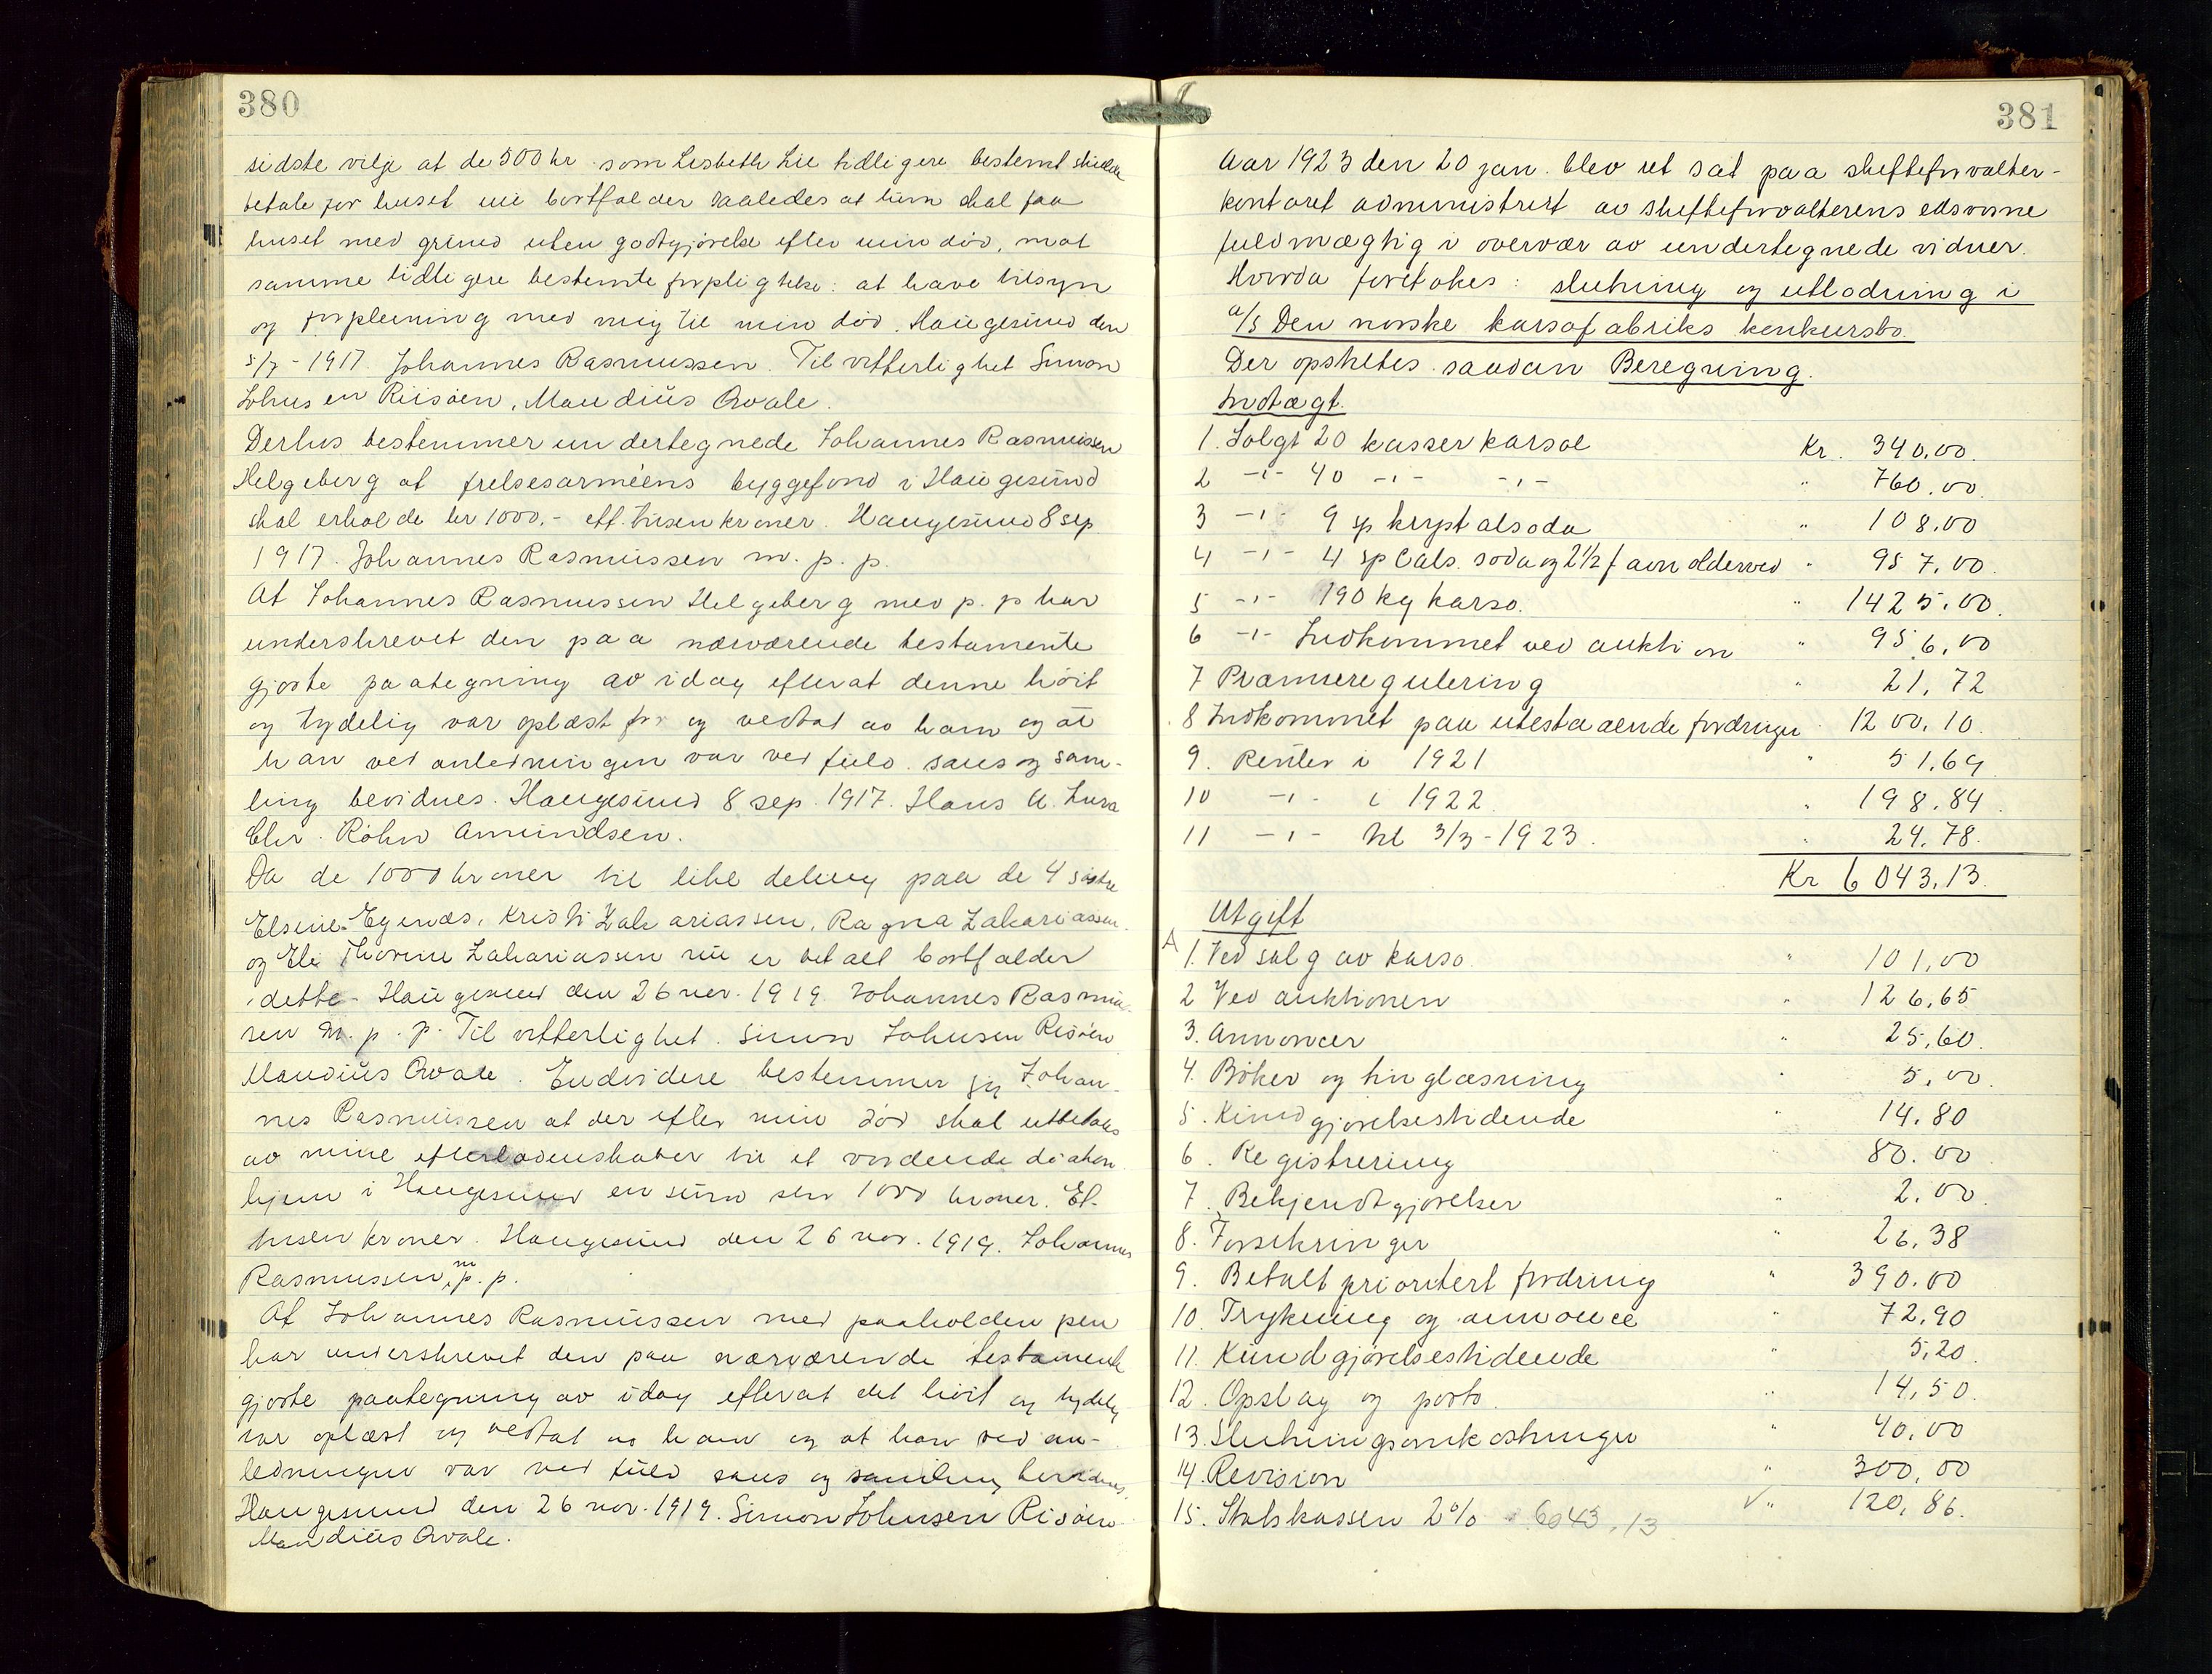 380
sidste vilje at de 500 kr. som Lisbeth Lie tidligere bestemt skulde
betale for huset nu bortfalder saaledes at hun skal faa
huset med grund uten godtgjørelse efter min død, mot
samme tidligere bestemte forpligtelse: at have tilsyn
og forpleining med mig til min død. Haugesund den
5/7-1917. Johannes Rasmussen. Til vitterlighet Simon
Johnsen Riisøen, Maudius Qvale.
Derhus bestemmer undertegnede Johannes Rasmussen
Helgeberg at frelsesarméens byggefond i Haugesund
skal erholde kr 1000.- ett tusen kroner. Haugesund 8 sep
1917. Johannes Rasmussen m. p. p.
At Johannes Rasmussen Helgeberg med p. p har
underskrevet den paa nærværende testamente
gjorte paategning av idag efterat denne høit
og tydelig var oplæst for og vedtat av ham og at
han ved anledningen var ved fuld sans og sam-
ling bevidnes. Haugesund 8 sep. 1917. Hans A.
Chr. Røhn Amundsen.
Da de 1000 kroner til like deling paa de 4 søstre
Elsine Egenæs, Kristi Zakariassen, Ragna Zakariassen
og Thorine Zakariassen nu er betalt bortfalder
dette. Haugesund den 26 nov. 1919. Johannes Rasmus-
sen m. p. p. Til vitterlighet. Simon Johnsen Risøen
Maudius Qvale. Endvidere bestemmer jeg Johan-
nes Rasmussen at der efter min død skal utbetales
av mine efterladenskaber til et vordende
hjem i Haugesund en sum stor 1000 kroner. Et-
tusen kroner. Haugesund den 26 nov. 1919. Johannes
Rasmussen m. p. p.
At Johannes Rasmussen med paaholden pen
har underskrevet den paa nærværende testamente
gjorte paategning av idag efterat det høit og tydelig
var oplæst og vedtat av ham og at han ved an-
ledningen var ved fuld sans og samling bevidnes.
Haugesund den 26 nov. 1919. Simon Johnsen Risøen
Maudius Qvale.
381
Aar 1923 den 20 jan. blev ret sat paa skifteforvalter-
kontoret administrert av skifteforvalterens edsvorne
fuldmægtig i overvær av undertegnede vidner.
Hvorda foretokes: slutning og utlodning i
a/s Den norske karsofabriks konkursbo.
Der opsattes saadan Beregning.
Indtægt.
1. Solgt 20 kasser karsol Kr. 340.00.
2 -"- 40 -"- -"- " 760.00
3 -"- 9 sp kryptalsoda " 108.00
4 -"- 4 sp Cals. soda og 2½ favn olderved " 957.00.
5 -"- 190 kg karso. " 1425.00.
6 -"- Indkommet ved auktion " 956,00
7 Præmieregulering " 21,72
8 Indkommet paa utestaaende fordringer " 1200.10.
9. Renter i 1921 " 51.69
10 -"- i 1922 " 198.84.
11 -"- til 3/3-1923. " 24.78.
Kr 6043.13.
Utgift
A
1. Ved salg av karso. " 101,00
2 Ved auktionen " 126,65
3. Annoncer " 25,60.
4. Bøker og tinglæsning " 5,00.
5. Kundgjørelsestidende " 14.80
6. Registrering 80.00
7. Bekjendtgjørelser " 2.00.
8. Forsikringer " 26,38
9. Betalt prioritert fordring " 390.00
10. Trykning og annonce " 72,90
11. Kundgjørelsestidende " 5,20.
12. Opslag og porto. " 14,50.
13. Slutningsomkostninger " 40,00
14. Revision " 300,00
15. Statskassen 2% 6043,13 √ " 120,86.